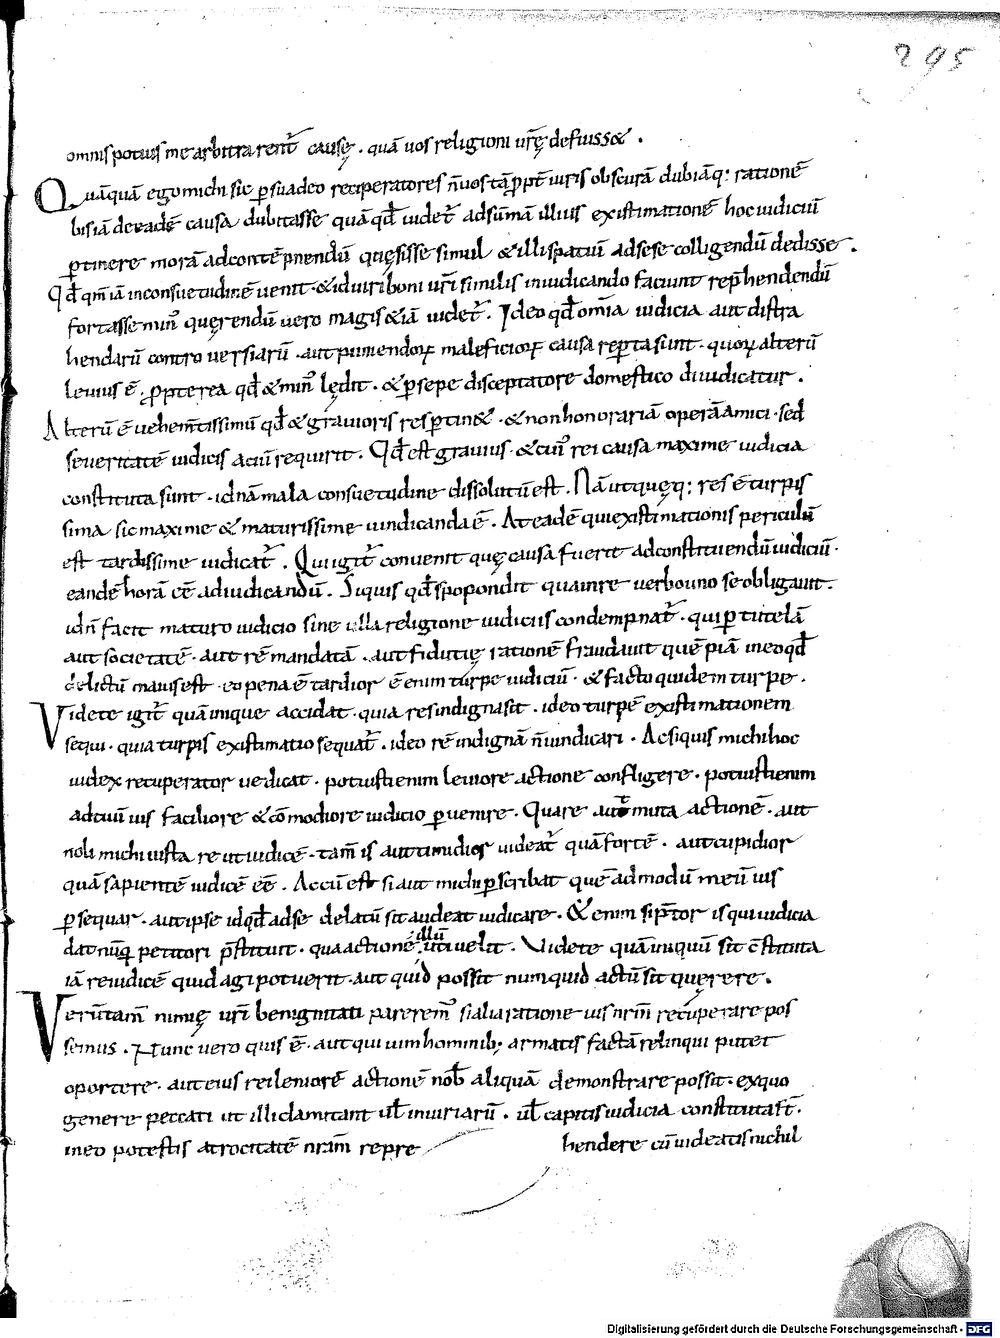 295
omnis potius me arbitrarent᷑ causę. quā uos religioni ur̄ę defuisse&.
Quāquā ego michi sic ꝑsuadeo reciperatores n̄ uos tā ꝓpt̄ iuris obscurā dubiāq; rationē
bis iā de eadē causa dubitasse quā qd̄ uidet᷑ ad sūmā illius existimationē hoc iudiciū
ꝑtinere morā ad contēpnendū quęsisse simul & illi spatiū ad sese colligendū dedisse.
Qd̄ qm̄ iā in consuetudinē uenit. & id uiri boni ur̄i similis in iudicando faciunt rep̄hendendū
fortasse min᷒ querendū uero magis &iā uidet᷑. Ideo qd̄ om̄ia iudicia aut distra
hendarū controuersiarū. aut puniendoꝝ maleficioꝝ causa reꝑta sunt. quoꝝ alterū
leuius ē. ꝓpterea qd̄ & min᷒ lędit. & ꝑ sepe disceptatore domestico diiudicatur.
Alterū ē uehem̄tissimū qd̄ & grauioris res ꝑtin&. & non honorariā operā amici. sed
seueritatē iudicis ac iū requirit. Qd̄ est grauius. & cui᷒ rei causa maxime iudicia
constituta sunt. id nā mala consuetudine dissolutū est. Nā ut quęq; res ē turpis
sima sic maxime & maturissime uindicanda ē. At eadē qui existimationis periculū
est tardissime iudicat᷑. Qui igit᷑ conuenit quę causa fuerit ad constituendū iudiciū.
eandē horā eē ad iudicandū. Siquis qd̄ spopondit qua in re uerbo uno se obligauit.
id n̄ facit maturo iudicio sine ulla religione iudiciis condempnat᷑. qui ꝑ tutelā
aut societatē. aut rē mandatā. aut fiducię rationē fraudauit quēpiā in eo qd̄
delictū maius est. eo pena ē tardior ē enim turpe iudiciū. & facto quidem turpe.
Videte igit᷑ quā inique accidat. quia res indigna sit. ideo turpē existimationem
sequi. quia turpis existimatio sequat᷑. ideo rē indignā n̄ uindicari. Ac siquis michi hoc
iudex recuperator ue dicat. potuisti enim leuiore actione confligere. potuisti enim
ad tuū ius faciliore & cōmodiore iudicio ꝑuenire. Quare aut muta actionē. aut
noli michi iusta re ut iudicē. tam̄ is aut timidior uideat᷑ quā fortē. aut cupidior
quā sapientē iudicē eē. Ac cū est si aut michi ꝑscribat quē ad modū meū ius
ꝑsequar. aut ipse id qd̄ ad se delatū sit audeat iudicare. & enim si p̄tor is qui iudicia
dat nūq petitori p̄stituit. qua actionē illū uti uelit. Videte quā iniquū sit c̄stituta
iā re iudicē quid agi potuerit. aut quid possit num quid actū sit querere.
Verūtam̄ nimię ur̄i benignitati parerem᷒ si alia ratione ius nr̄m recuperare pos
semus. Nunc uero quis ē. aut qui uim hominib; armatis factā relinqui putet
oportere. aut eius rei leniorē actionē nob̄ aliquā demonstrare possit. ex quo
genere peccati ut illi clamitant ul̄ iniuriarū. ul̄ capitis iudicia constituta st̄.
in eo potestis atrocitatē nr̄am repre hendere cū uideatis nichil
Digitalisierung gefördert durch die Deutsche Forschungsgemeinschaft - DFG